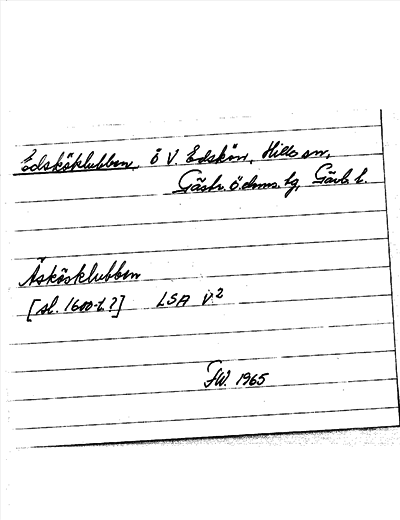 Edsköklubben, ö V. Edskön, Hille sn,
Gästr. ö. doms. tg, Gävl. l.
Äskösklubben
[sl. 1600-t.?] LSA V.2
FW. 1965